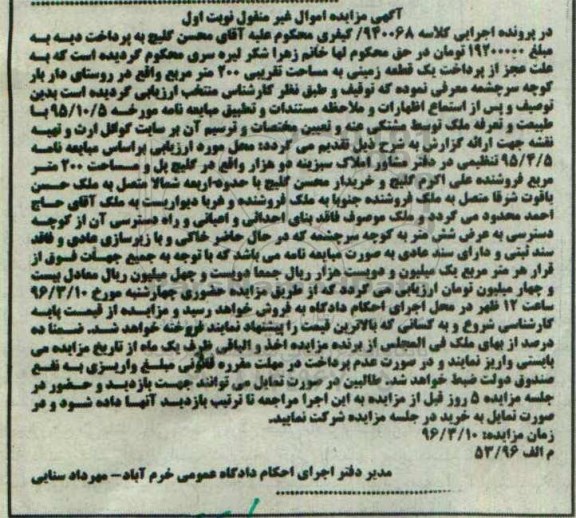 آگهی مزایده اموال غیر منقول نوبت اول
در پرونده اجرایی کلاسه ۹۴۰۰۶۸/ کیفری محکوم علیه آقای محسن گلیج به پرداخت دیه به
مبلغ ۱۹۲۰۰۰۰۰ تومان در حق محکوم لها خانم زهرا شکر لیره سری محکوم گردیده است که به
علت عجز از پرداخت یک قطعه زمینی به مساحت تقریبی ۲۰۰ متر مربع واقع در روستای دار بار
کوچه سرچشمه معرفی نموده که توقیف و طبق نظر کارشناس منتخب ارزیابی گردیده است بدین
توصیف و پس از استماع اظهارات و ملاحظه مستندات و تطبیق مبایعه نامه مورخه ۹۵/۱۰/۵ با
طبیعت و تعرفه ملک توسط مشتکی عنه و تعیین مختصات و ترسیم آن بر سایت گوگل ارث و تهیه
نقشه جهت ارائه گزارش به شرح ذیل تقدیم می گردد: محل مورد ارزیابی براساس مبایعه نامه
۹۵/۴/۵ تنظیمی در دفتر مشاور املاک سبزینه دو هزار واقع در گلیج پل و مساحت ۲۰۰ متر
مربع فروشنده علی اکرم گلیج و خریدار محسن گلیج با حدود اربعه شمالا متصل به ملک حسن
یاقوت شرقا متصل به ملک فروشنده جنوبا به ملک فروشنده و غربا دیواریست به ملک آقای حاج
احمد محدود می گردد و ملک موصوف فاقد بنای احداثی و اعیانی و راه دسترسی آن از کوچه
دسترسی به عرض شش متر به کوچه سرچشمه که در حال حاضر خاکی و با زیرسازی عادی و فاقد
سند ثبتی و دارای سند عادی به صورت مبایعه نامه می باشد که با توجه به جمیع جهات فوق از
قرار هر متر مربع یک میلیون و دویست هزار ریال جمعا دویست و چهل میلیون ریال معادل بیست
و چهار میلیون تومان ارزیابی می گردد که از طریق مزایده حضوری چهارشنبه مورخ ۹۶/۳/۱۰
ساعت ۱۲ ظهر در محل اجرای احکام دادگاه به فروش خواهد رسید و مزایده از قیمت پایه
کارشناسی شروع و به کسانی که بالاترین قیمت را پیشنهاد نمایند فروخته خواهد شد. ضمنا ده
درصد از بهای ملک فی المجلس از برنده مزایده اخذ و الباقی ظرف یک ماه از تاریخ مزایده می
بایستی واریز نمایند و در صورت عدم پرداخت در مهلت مقرره قانونی مبلغ واریزی به نفع
صندوق دولت ضبط خواهد شد. طالبین در صورت تمایل می توانند جهت بازدید و حضور در
جلسه مزایده ۵ روز قبل از مزایده به این اجرا مراجعه تا ترتیب بازدید آنها داده شود و در
صورت تمایل به خرید در جلسه مزایده شرکت نمایید.
زمان مزایده: ۹۶/۳/۱۰
م الف ۵۳/۹۶
مدیر دفتر اجرای احکام دادگاه عمومی خرم آباد – مهرداد سنایی